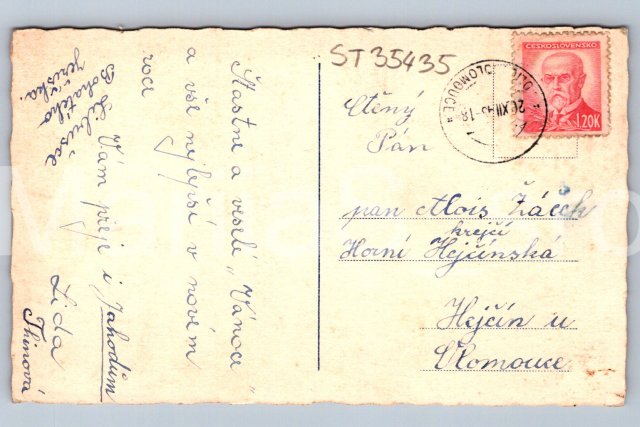 Šťastné a veselé „Vánoce"
a vše nejlepší v novém
roce
Vám přeje i Jahodům
Lída
Thinová
Bohatého
Ježíška.
ST 35435
ČESKOSLOVENSKO
1.20K
OLOMOUC
OLOMOUCE
XII
-18
Ctěný
Pán
pan Alois Žáček
krejčí
Horní Hejčínská
Hejčín u
Olomouce